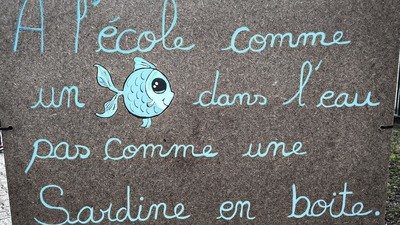 A l'école comme
un dans l'eau
pas comme une
Sardine en boite.